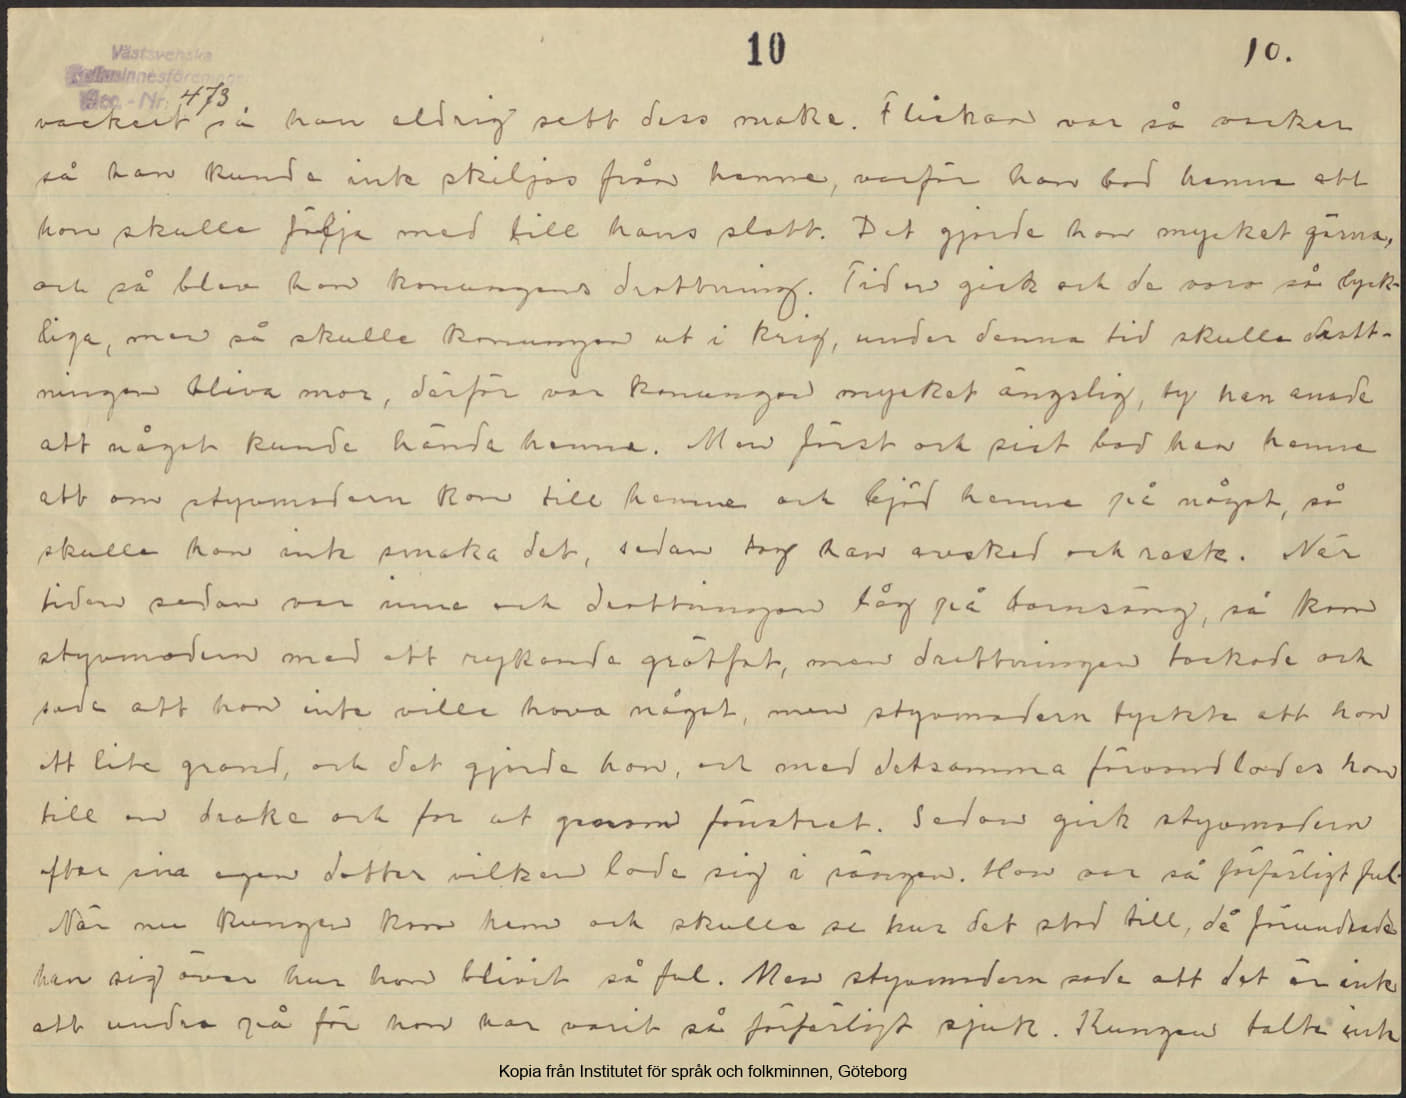 10
10.
Västsvenska
Folkminnesföreningen
Acc. - Nr. 473
vackert så han aldrig sett dess make. Flickan var så vacker
så han kunde inte skiljas från henne, varför han bad henne att
hon skulle följa med till hans slott. Det gjorde hon mycket gärna,
och så blev hon konungens drottning. Tiden gick och de voro så lyck-
liga, men så skulle konungen ut i krig, under denna tid skulle drott-
ningen bliva mor, därför var konungen mycket ängslig, ty han anade
att något kunde hända henne. Men först och sist bad han henne
att om styvmodern kom till henne och bjöd henne på något, så
skulle hon inte smaka det, sedan tog han avsked och reste. När
tiden sedan var inne och drottningen låg på barnsäng, så kom
styvmodern med ett rykande grötfat, men drottningen tackade och
sade att hon inte ville hava något, men styvmodern tyckte att hon
ett lite grand, och det gjorde hon, och med detsamma förvandlades hon
till en drake och for ut genom fönstret. Sedan gick styvmodern
efter sin egen dotter vilken lade sig i sängen. Hon var så förfärligt ful.
När nu kungen kom hem och skulle se hur det stod till, då förundrade
han sig över hur hon blivit så ful. Men styvmodern sade att det är inte
att undra på för hon har varit så förfärligt sjuk. Kungen talte inte
Kopia från Institutet för språk och folkminnen, Göteborg